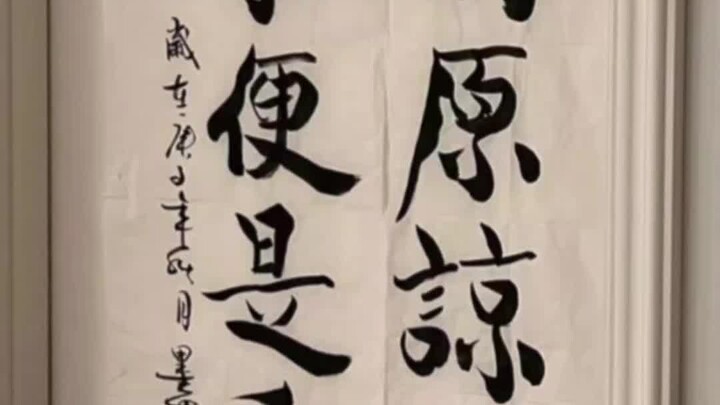 原諒
便是
歲在庚子年
月墨